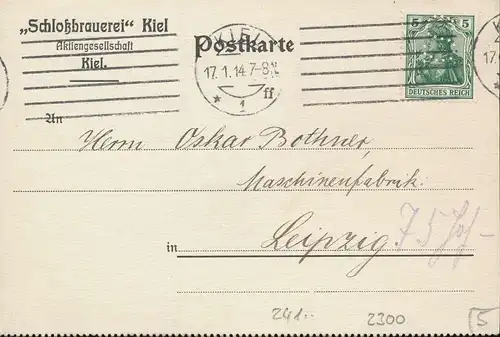 „Schloßbrauerei“ Kiel
Aktiengesellschaft
Kiel.
Postkarte
KIEL
17.1.14.7-8.
ff
* 1 *
5 5
DEUTSCHES REICH
17.
An
Herrn Oskar Bothner,
Maschinenfabrik.
in Leipzig.
241..
2300
5